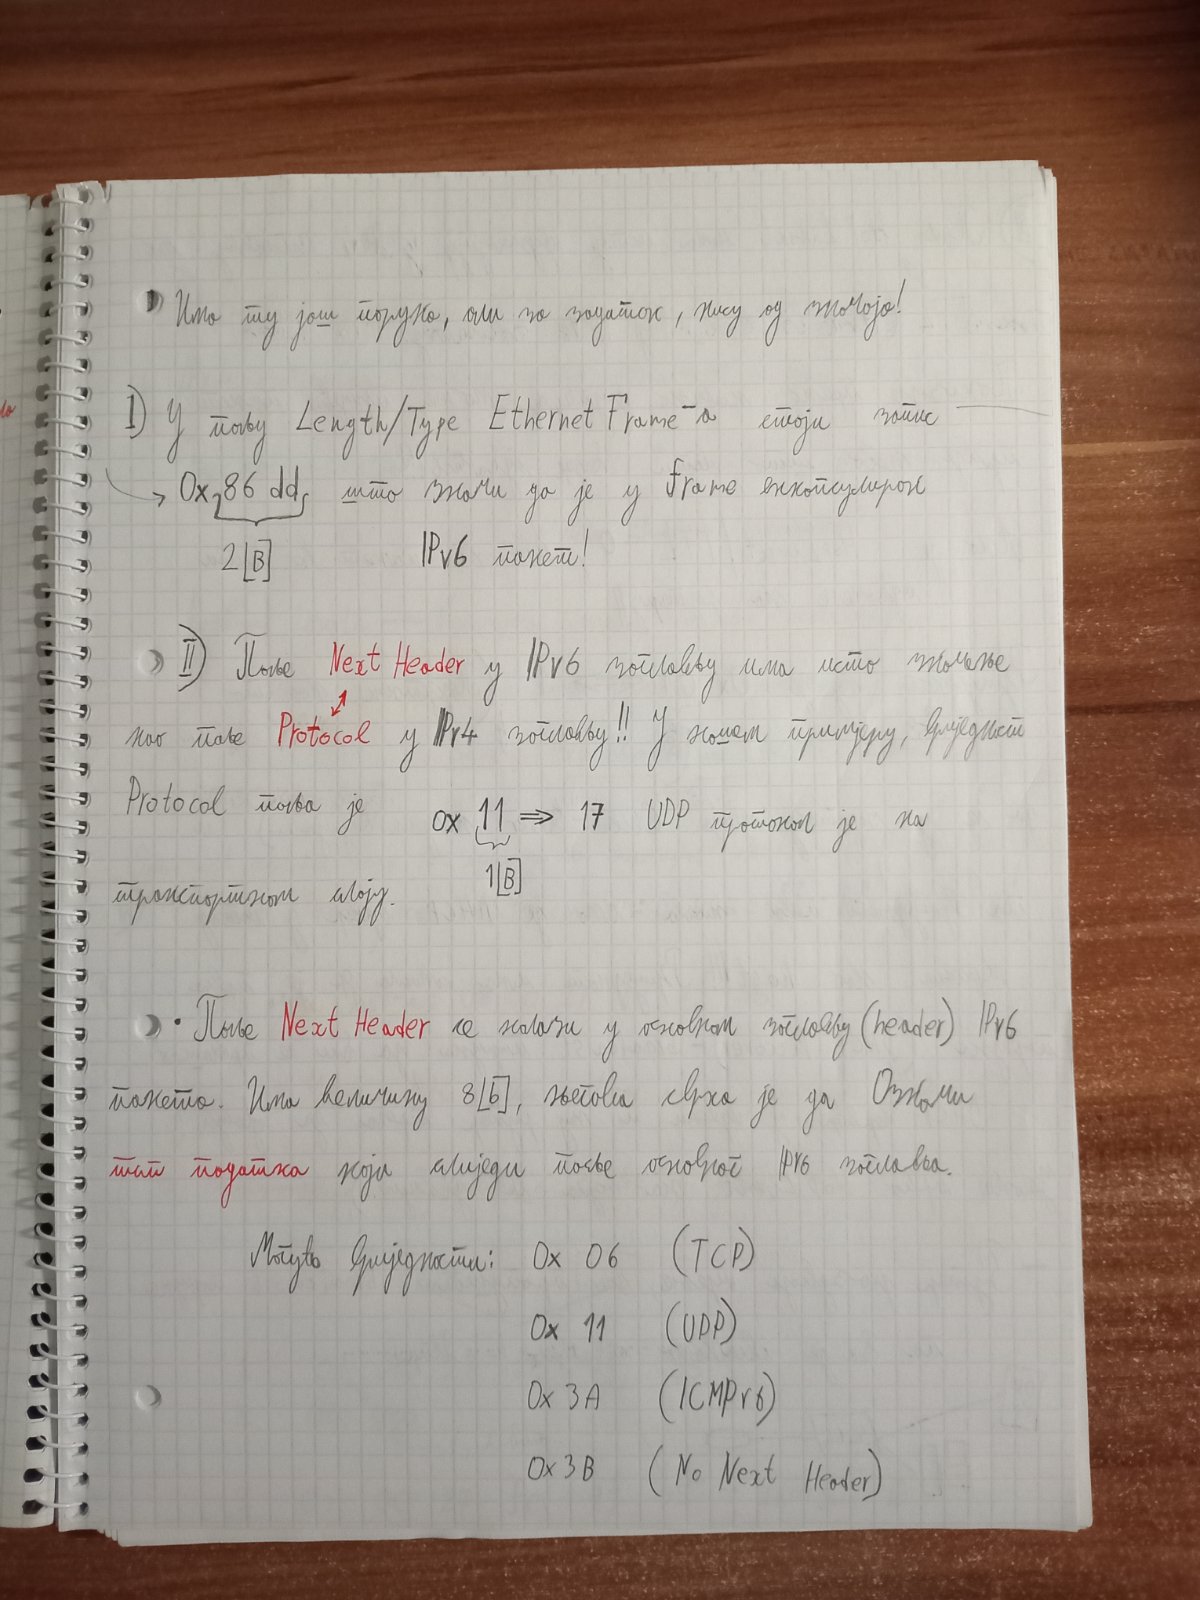 Има ту још порука, али за задатак, нису од значаја!
I) У пољу Length/Type Ethernet Frame-а стоји запис
→ 0x 86 dd, што значи да је у frame енкапсулиран
2[B] IPv6 пакет!
II) Поље Next Header у IPv6 заглављу има исто значење
као поље Protocol у IPv4 заглављу!! У нашем примјеру, вриједност
Protocol поља је 0x 11 ⇒ 17 UDP протокол је на
1[B]
транспортном слоју.
• Поље Next Header се налази у основном заглављу (header) IPv6
пакета. Има величину 8[b], његова сврха је да означи
тип податка који слиједи после основног IPv6 заглавља.
Могуће вриједности: 0x 06 (TCP)
0x 11 (UDP)
0x 3A (ICMPv6)
0x 3B (No Next Header)